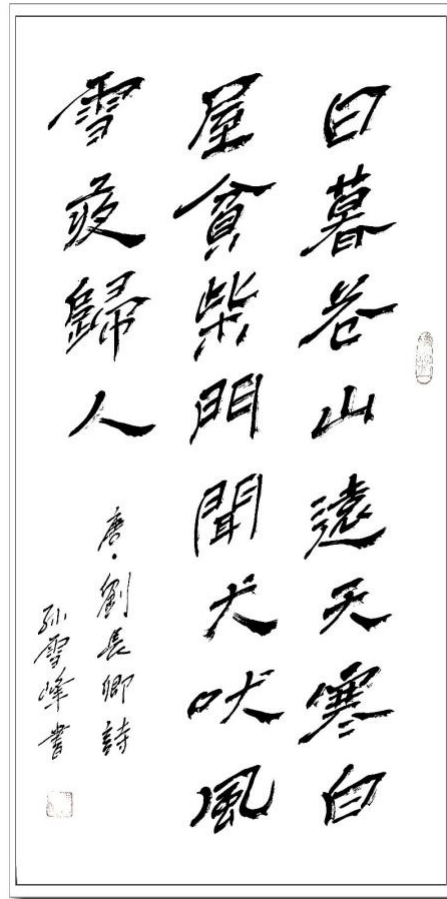 日暮苍山遠天寒白
屋貧柴門聞犬吠風
雪夜歸人
唐·劉長卿詩
孙雪峰書